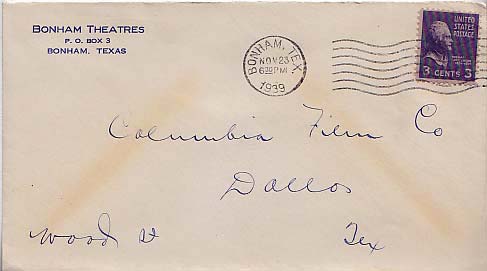 BONHAM THEATRES
P. O. BOX 3
BONHAM, TEXAS
BONHAM, TEX.
NOV 23
6 PM
1939
UNITED STATES POSTAGE
3 CENTS 3
Columbia Film Co
Dallas
Wood St Tex